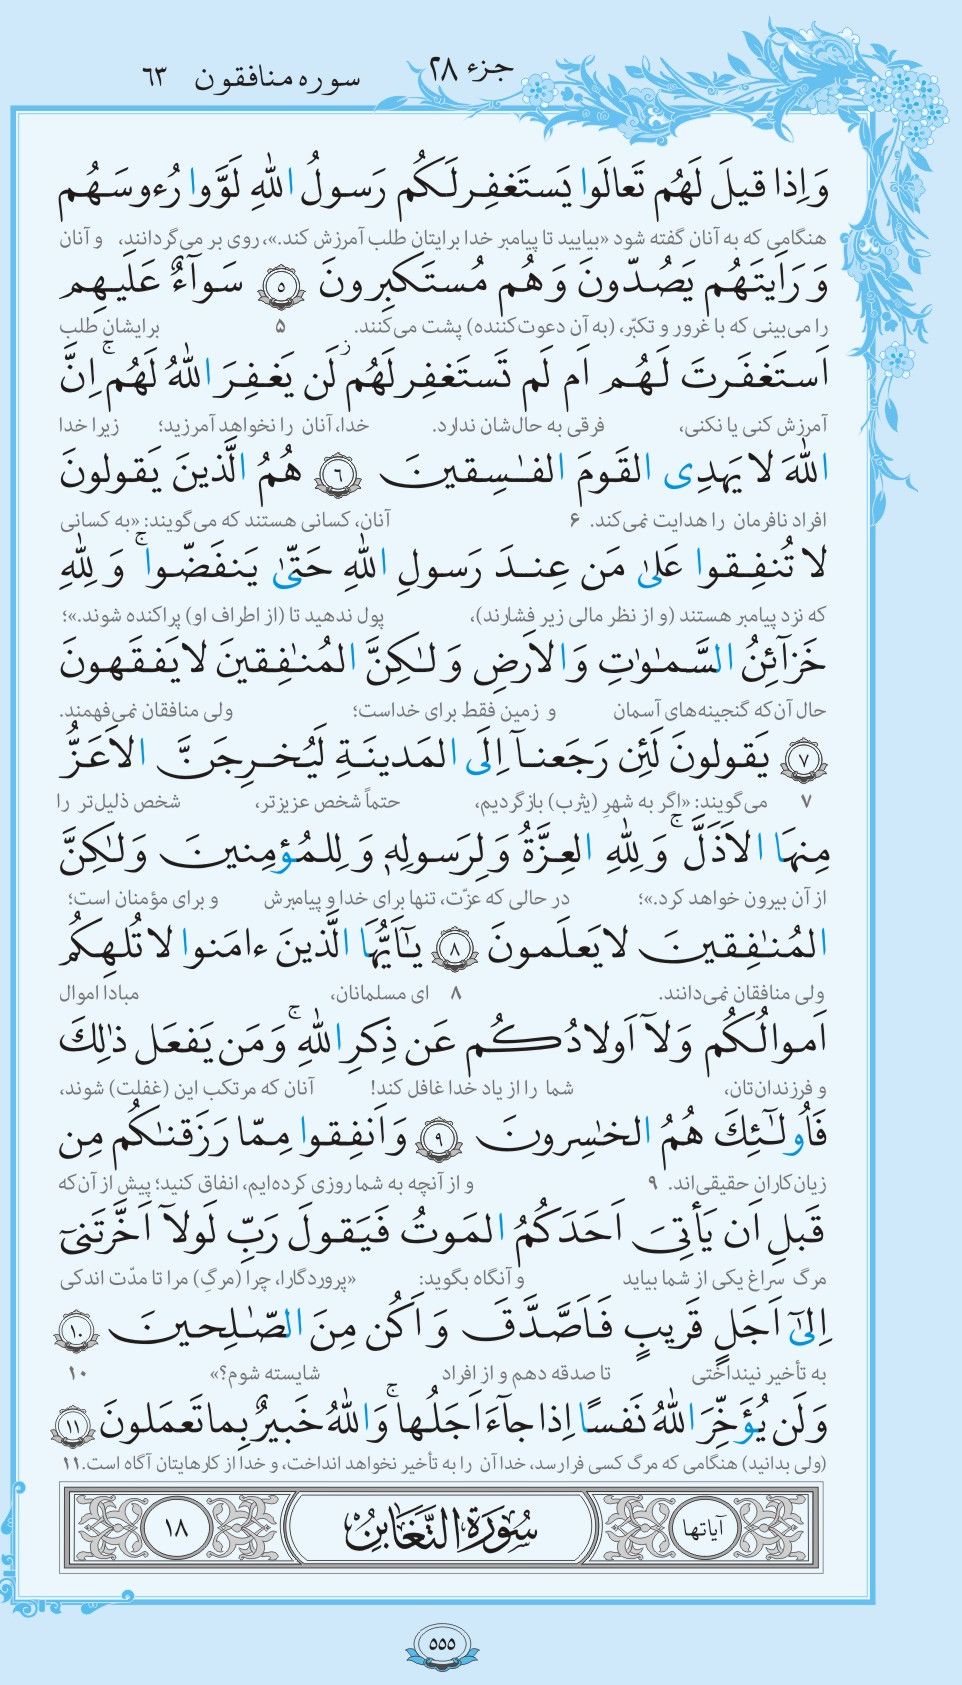 جزء ۲۸
سوره منافقون ۶۳
وَ اِذا قيلَ لَهُم تَعالَوا يَستَغفِرلَكُم رَسولُ اللّٰهِ لَوَّوا رُءوسَهُم
هنگامی که به آنان گفته شود «بیایید تا پیامبر خدا برایتان طلب آمرزش کند.»، روی بر می‌گردانند، و آنان
وَ رَاَيتَهُم يَصُدّونَ وَ هُم مُستَكبِرونَ ۵ سَوآءٌ عَلَيهِم
را می‌بینی که با غرور و تکبّر، (به آن دعوت‌کننده) پشت می‌کنند. ۵ برایشان طلب
اَستَغفَرتَ لَهُم اَم لَم تَستَغفِرلَهُم ز لَن يَغفِرَ اللّٰهُ لَهُم ۚ اِنَّ
آمرزش کنی یا نکنی، فرقی به حال‌شان ندارد. خدا، آنان را نخواهد آمرزید؛ زیرا خدا
اللّٰهَ لا يَهدِى القَومَ الفٰـسِقينَ ۶ هُمُ الَّذينَ يَقولونَ
افراد نافرمان را هدایت نمی‌کند. ۶ آنان، کسانی هستند که می‌گویند: «به کسانی
لا تُنفِقوا عَلىٰ مَن عِندَ رَسولِ اللّٰهِ حَتّىٰ يَنفَضّوا ۚ وَ لِلّٰهِ
که نزد پیامبر هستند (و از نظر مالی زیر فشارند)، پول ندهید تا (از اطراف او) پراکنده شوند.»؛
خَزآئِنُ السَّمٰوٰتِ وَ الاَرضِ وَ لٰـكِنَّ المُنٰفِقينَ لا يَفقَهونَ
حال آن‌که گنجینه‌های آسمان و زمین فقط برای خداست؛ ولی منافقان نمی‌فهمند.
۷ يَقولونَ لَئِن رَجَعنـآ اِلَى المَدينَةِ لَيُخرِجَنَّ الاَعَزُّ
۷ می‌گویند: «اگر به شهرِ (یثرب) بازگردیم، حتماً شخص عزیزتر، شخص ذلیل‌تر را
مِنهَا الاَذَلَّ ۚ وَ لِلّٰهِ العِزَّةُ وَ لِرَسولِهٖ وَ لِلمُؤمِنينَ وَ لٰكِنَّ
از آن بیرون خواهد کرد.»؛ در حالی که عزّت، تنها برای خدا و پیامبرش و برای مؤمنان است؛
المُنٰفِقينَ لا يَعلَمونَ ۸ يٰـآَيُّهَا الَّذينَ ءامَنوا لا تُلهِكُم
ولی منافقان نمی‌دانند. ۸ ای مسلمانان، مبادا اموال
اَموالُكُم وَ لآ اَولادُكُم عَن ذِكرِ اللّٰهِ ۚ وَ مَن يَفعَل ذٰلِكَ
و فرزندان‌تان، شما را از یاد خدا غافل کند! آنان که مرتکب این (غفلت) شوند،
فَاُولٰـئِكَ هُمُ الخٰسِرونَ ۹ وَ اَنفِقوا مِمّا رَزَقنٰـكُم مِن
زیان‌کارانِ حقیقی‌اند. ۹ و از آنچه به شما روزی کرده‌ایم، انفاق کنید؛ پیش از آن‌که
قَبلِ اَن يَأتِىَ اَحَدَكُمُ المَوتُ فَيَقولَ رَبِّ لَولآ اَخَّرتَنىٓ
مرگ سراغ یکی از شما بیاید و آنگاه بگوید: «پروردگارا، چرا (مرگِ) مرا تا مدّت اندکی
اِلىٰٓ اَجَلٍ قَريبٍ فَاَصَّدَّقَ وَ اَكُن مِنَ الصّٰـلِحينَ ۱۰
به تأخیر نینداختی تا صدقه دهم و از افراد شایسته شوم؟» ۱۰
وَ لَن يُؤَخِّرَ اللّٰهُ نَفسًا اِذا جآءَ اَجَلُها ۚ وَ اللّٰهُ خَبيرٌ بِما تَعمَلونَ ۱۱
(ولی بدانید) هنگامی که مرگ کسی فرارسد، خدا آن را به تأخیر نخواهد انداخت، و خدا از کارهایتان آگاه است. ۱۱
آیاتها سُورَةُ التَّغَابُنِ ۱۸
۵۵۵